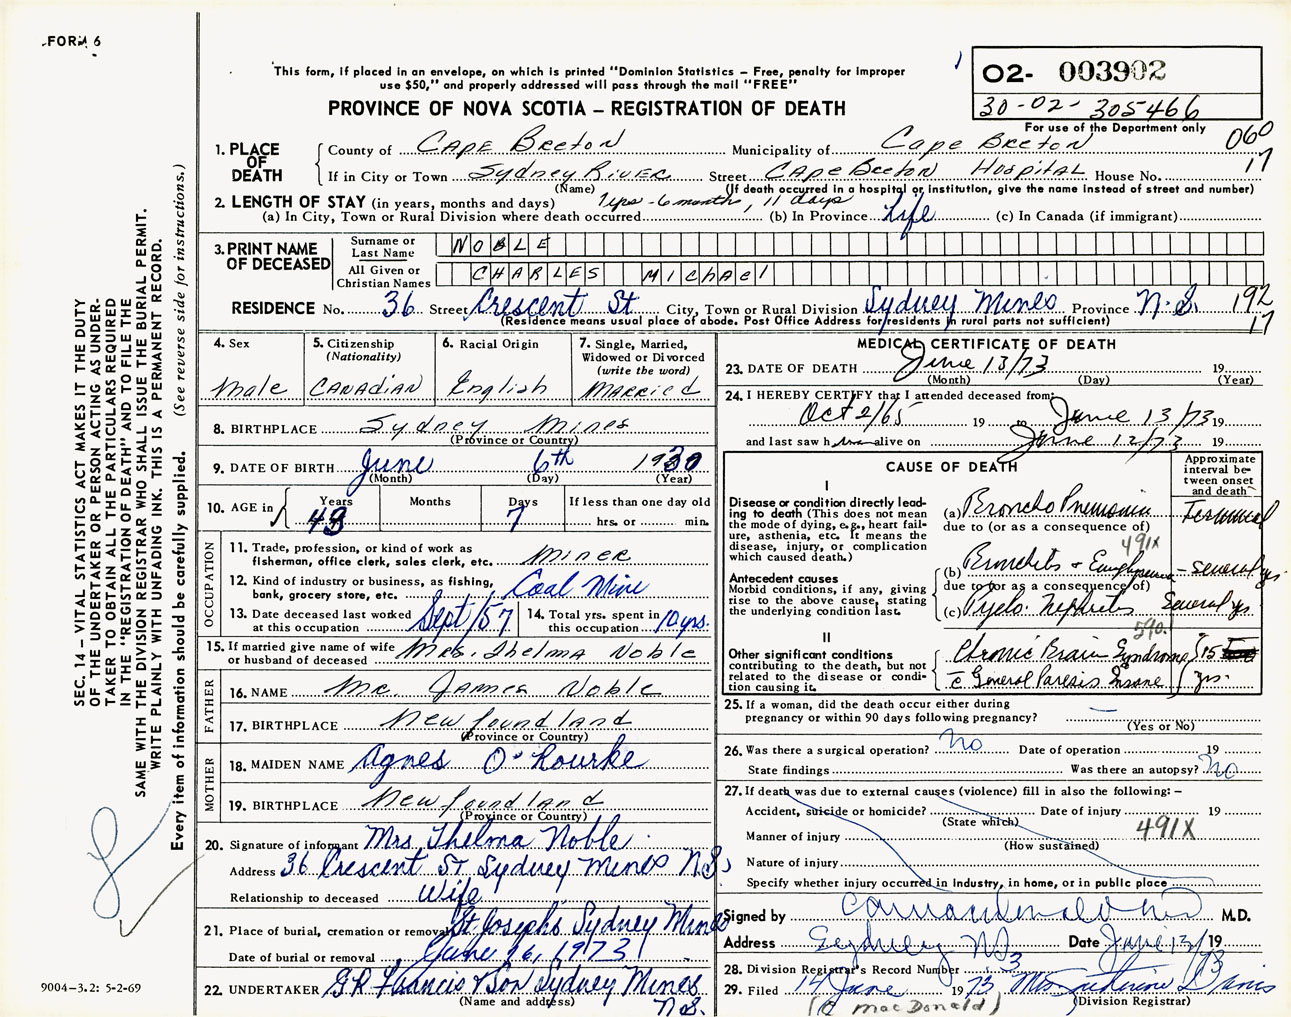 FORM 6
This form, if placed in an envelope, on which is printed "Dominion Statistics – Free, penalty for improper
use $50," and properly addressed will pass through the mail "FREE"
PROVINCE OF NOVA SCOTIA – REGISTRATION OF DEATH
02- 003902
30-02-305466
For use of the Department only
060
17
1. PLACE OF DEATH
County of CAPE BRETON Municipality of Cape Breton
If in City or Town Sydney River Street Cape Breton Hospital House No.
(Name) (If death occurred in a hospital or institution, give the name instead of street and number)
2. LENGTH OF STAY (in years, months and days) 7 yrs - 6 months, 11 days
(a) In City, Town or Rural Division where death occurred (b) In Province Life (c) In Canada (if immigrant)
3. PRINT NAME OF DECEASED
Surname or Last Name NOBLE
All Given or Christian Names CHARLES Michael
RESIDENCE No. 36 Street Crescent St City, Town or Rural Division Sydney Mines Province N.S. 192
17
(Residence means usual place of abode. Post Office Address for residents in rural parts not sufficient)
4. Sex
Male
5. Citizenship (Nationality)
CANADIAN
6. Racial Origin
English
7. Single, Married, Widowed or Divorced (write the word)
MARRIED
8. BIRTHPLACE Sydney Mines
(Province or Country)
9. DATE OF BIRTH June 6th 1930
(Month) (Day) (Year)
10. AGE in Years 43 Months Days 7 If less than one day old
hrs. or min.
OCCUPATION
11. Trade, profession, or kind of work as fisherman, office clerk, sales clerk, etc. MINER
12. Kind of industry or business, as fishing, bank, grocery store, etc. Coal Mine
13. Date deceased last worked at this occupation Sept/57
14. Total yrs. spent in this occupation 10 yrs.
15. If married give name of wife or husband of deceased Mrs. Thelma Noble
FATHER
16. NAME Mr. James Noble
17. BIRTHPLACE Newfoundland
(Province or Country)
MOTHER
18. MAIDEN NAME Agnes O'Rourke
19. BIRTHPLACE Newfoundland
(Province or Country)
20. Signature of informant Mrs Thelma Noble
Address 36 Crescent St Sydney Mines N.S.
Relationship to deceased Wife
21. Place of burial, cremation or removal St Josephs, Sydney Mines
Date of burial or removal June 16, 1973
22. UNDERTAKER G.R. Francis & Son Sydney Mines
(Name and address) N.S.
MEDICAL CERTIFICATE OF DEATH
23. DATE OF DEATH June 13/73 19
(Month) (Day) (Year)
24. I HEREBY CERTIFY that I attended deceased from:
Oct 2/65 19 to June 13/73 19
and last saw him alive on June 12/73 19
CAUSE OF DEATH
Approximate interval between onset and death
I
Disease or condition directly leading to death (This does not mean the mode of dying, e.g., heart failure, asthenia, etc. It means the disease, injury, or complication which caused death.)
(a) Broncho Pneumonia Terminal
due to (or as a consequence of)
491X
Antecedent causes
Morbid conditions, if any, giving rise to the above cause, stating the underlying condition last.
(b) Bronchitis & Emphysema – several yrs.
due to (or as a consequence of)
(c) Pyelo. Nephritis Several yrs
590.
II
Other significant conditions contributing to the death, but not related to the disease or condition causing it.
Chronic Brain Syndrome 15
c General Paresis Insane yrs.
25. If a woman, did the death occur either during pregnancy or within 90 days following pregnancy? —
(Yes or No)
26. Was there a surgical operation? No Date of operation 19
State findings Was there an autopsy? No
27. If death was due to external causes (violence) fill in also the following: –
Accident, suicide or homicide? Date of injury 19
(State which)
Manner of injury 491X
(How sustained)
Nature of injury
Specify whether injury occurred in industry, in home, or in public place
Signed by M.D.
Address Sydney NS Date June 13/ 19 73
28. Division Registrar's Record Number 3
29. Filed 14 June 1973 Mrs Davis
(C MacDonald) (Division Registrar)
SEC. 14 – VITAL STATISTICS ACT MAKES IT THE DUTY
OF THE UNDERTAKER OR PERSON ACTING AS UNDER-
TAKER TO OBTAIN ALL THE PARTICULARS REQUIRED
IN THE "REGISTRATION OF DEATH" AND TO FILE THE
SAME WITH THE DIVISION REGISTRAR WHO SHALL ISSUE THE BURIAL PERMIT.
WRITE PLAINLY WITH UNFADING INK. THIS IS A PERMANENT RECORD.
Every item of information should be carefully supplied. (See reverse side for instructions.)
9004-3.2: 5-2-69